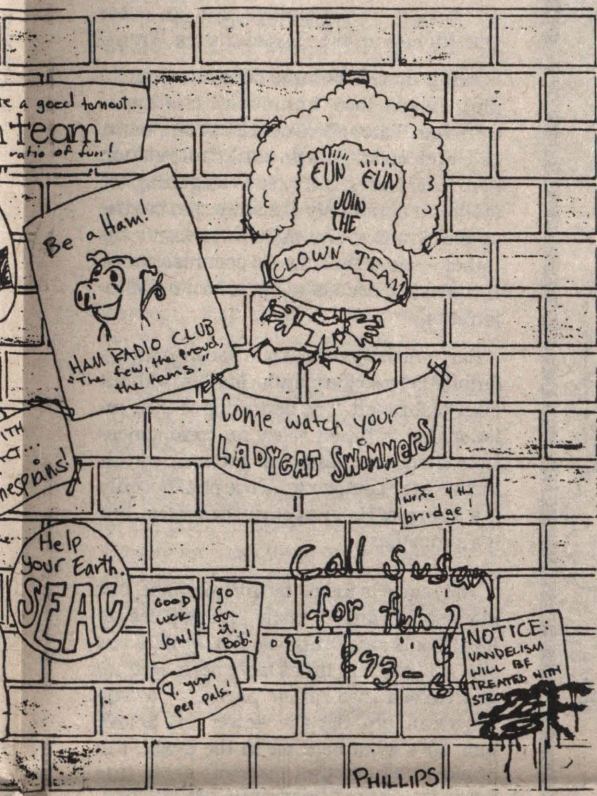 e a good turnout
team
ratio of fun!
Be a Ham!
HAM RADIO CLUB
"The few, the proud,
the hams."
FUN FUN
JOIN
THE
CLOWN TEAM
Come watch your
LADYCAT SWIMMERS
ITH
nespians!
write 4 the
bridge!
Help
your Earth.
SEAC
GOOD
LUCK
JON!
go
for
it,
Bob!
pep pals!
Call Susan
for fun
893-
NOTICE:
VANDELISM
WILL BE
TREATED WITH
PHILLIPS